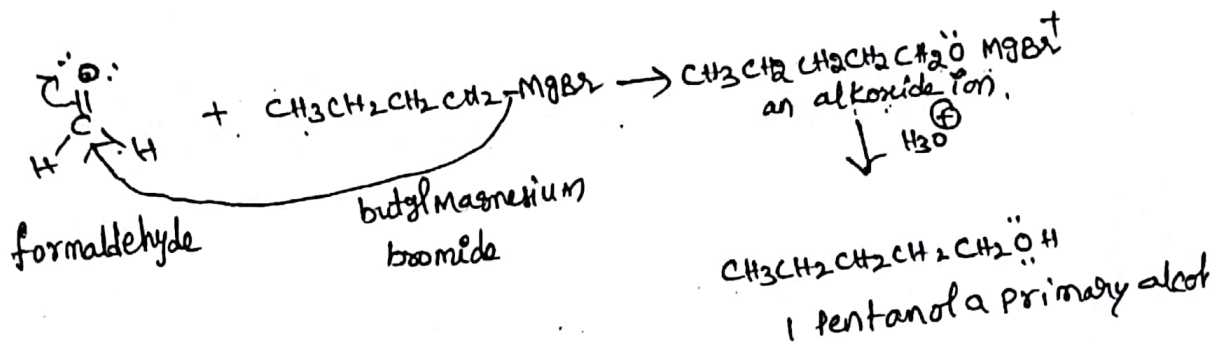 :Ö:
C
H H
+ CH3CH2CH2CH2-MgBr → CH3CH2CH2CH2CH2Ö MgBr+
an alkoxide ion.
H3O⊕
formaldehyde
butylmagnesium
bromide
CH3CH2CH2CH2CH2ÖH
1 Pentanol a primary alcol